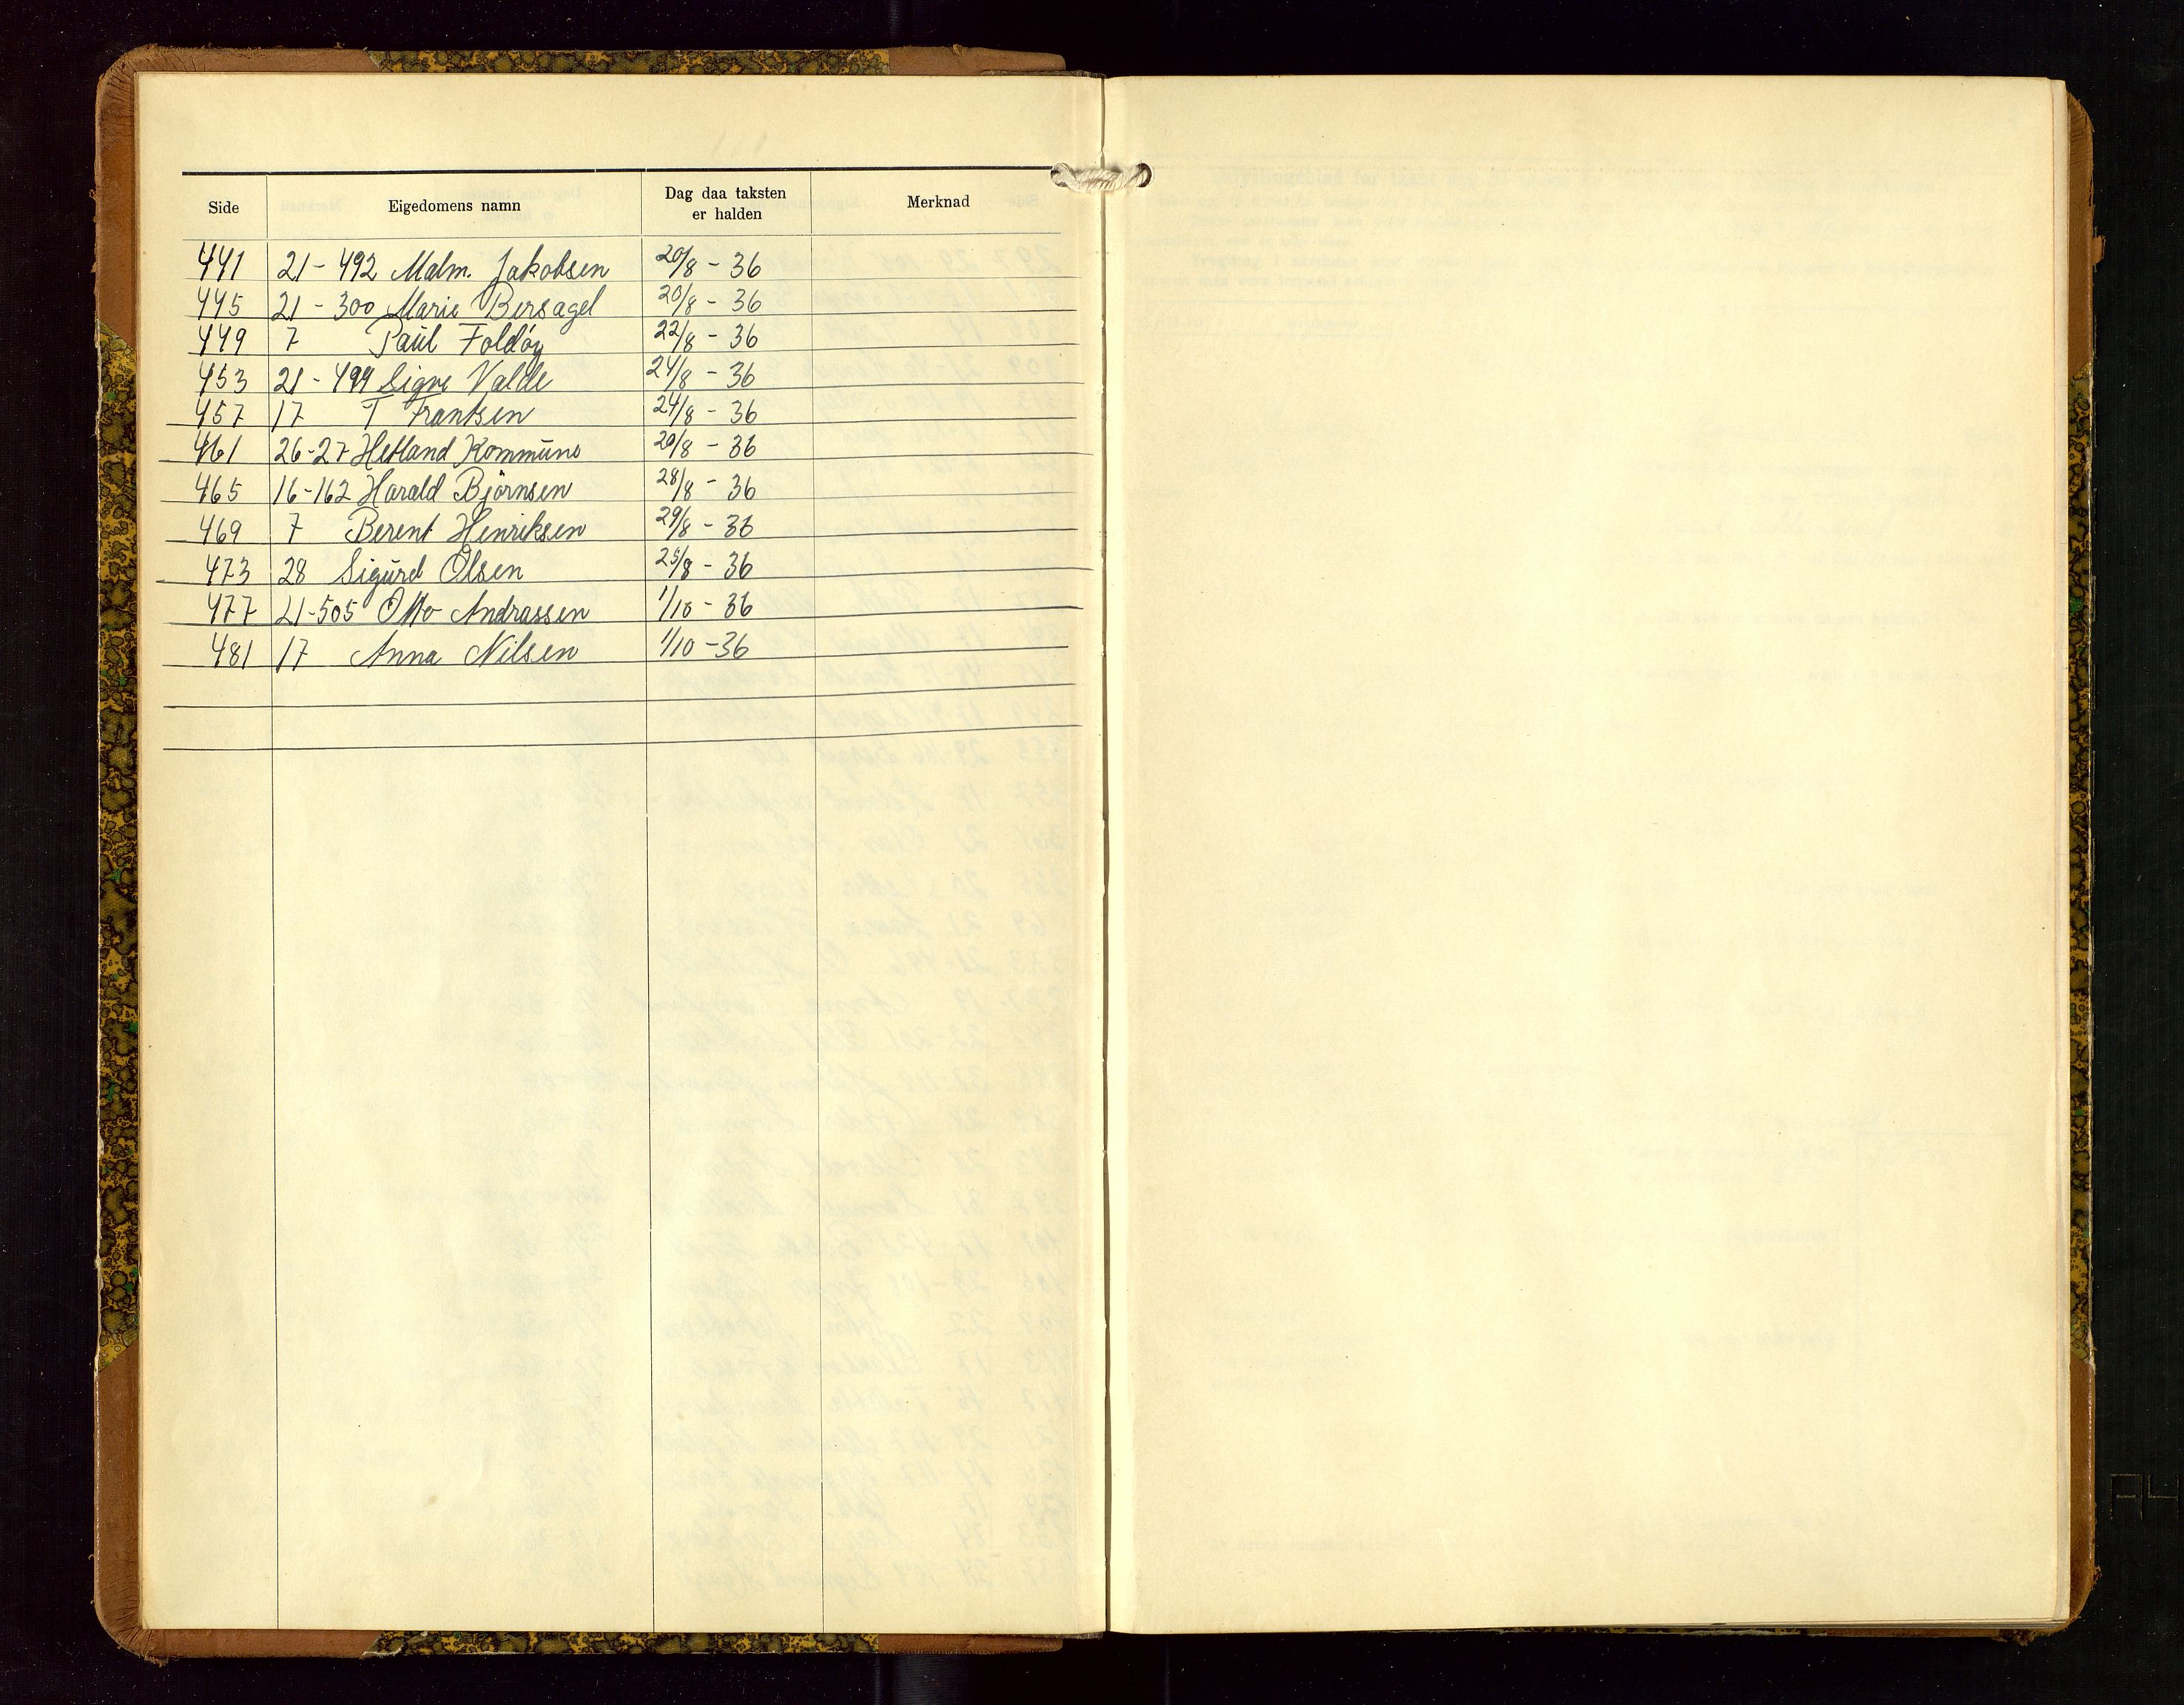 Side Eigedomens namn Dag daa taksten er halden Merknad
441 21-492 Malm. Jakobsen 20/8 - 36
445 21-300 Marie Bersagel 20/8 - 36
449 7 Paul Foldøy 22/8 - 36
453 21-499 Signe Valde 24/8 - 36
457 17 T Frantsen 24/8 - 36
461 26-27 Hetland Kommune 20/8 - 36
465 16-162 Harald Bjørnsen 28/8 - 36
469 7 Berent Henriksen 29/8 - 36
473 28 Sigurd Olsen 25/8 - 36
477 21-505 Otto Andrassen 1/10 - 36
481 17 Anna Nilsen 1/10 - 36